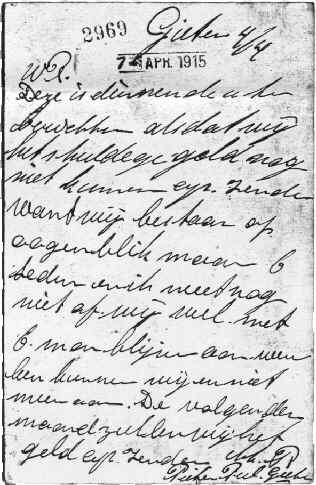 Gieten 4/4
2969
7 APR. 1915
W.E.
Deze is dienende u te
alsdat wij
het schuldege geld nog
niet kunnen op. Zenden
want wij bestaan op
oogenblik maar 6
leden en ik weet nog
niet of wij wel met
6 man blijven aan
kunnen wij en niet
meer aan. De volgende
maand zullen wij het
geld op. Zenden
Gieten